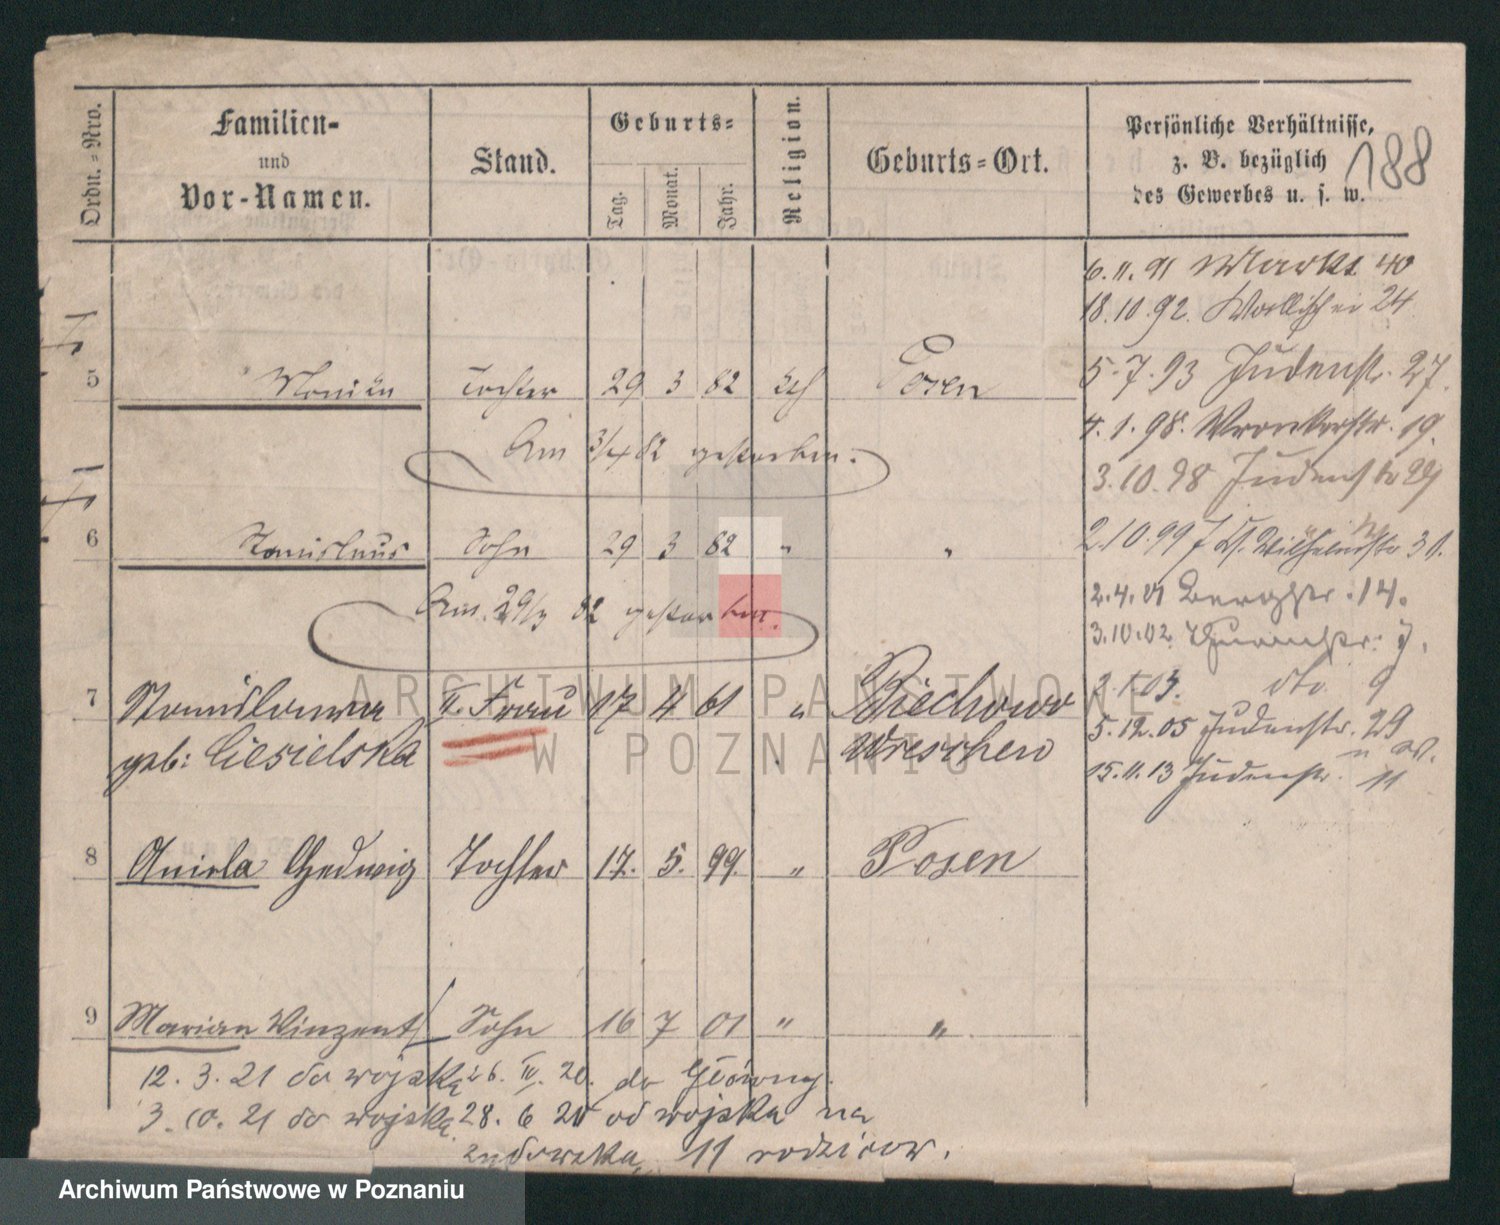 Ordn.-Nro.
Familien-
und
Vor-Namen.
Stand.
Geburts-
Tag.
Monat.
Jahr.
Religion.
Geburts-Ort.
Persönliche Verhältnisse,
z. B. bezüglich
des Gewerbes u. s. w.
188
6.11.91 Markt 40
18.10.92. Wallischei 24
5 Tochter 29 3 82 kth Posen
5.7.93 Judenstr. 27.
Am 3/4 82 gestorben.
4.1.98. Wronkerstr. 19.
3.10.98 Judenstr 29
6 Stanislaus Sohn 29 3 82 " "
2.10.99 Wilhelmstr 31.
Am. 29/3 82 gestorben.
2.4.01 Bergstr. 14.
3.10.02
7 Stanislawa II. Frau 17 4 61 " Biechowo
geb: Ciesielska Wreschen
2.1.03. dto 9
5.12.05 Judenstr. 29
15.11.13 Judenstr. 11
8 Aniela Hedwig Tochter 17. 5. 99. " Posen
9 Marian Vinzent Sohn 16 7 01 " "
12.3.21 do wojska 26. IV. 20. do Główny.
3.10.21 do wojska 28. 6 20 od wojska na
żydowska 11 rodziców.
ARCHIWUM PAŃSTWOWE
W POZNANIU
Archiwum Państwowe w Poznaniu